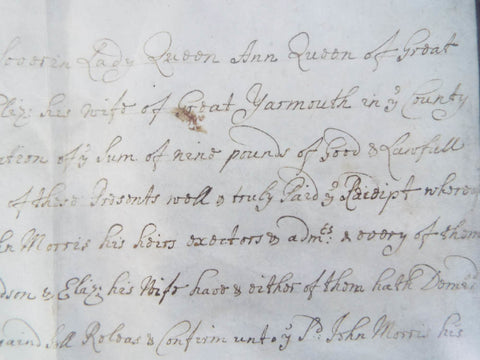 soverin Lady Queen Ann Queen of Great
Eliz: his wife of Great Yarmouth in ye County
ation of ye sum of nine pounds of Good & Lawfull
of these Presents well & truly Paid ye Receipt whereof
hn Morris his heirs exectors & adms: & every of them
dson & Eliz: his Wife have & either of them hath Demisd
Releas & Confirm unto ye Sd John Morris his